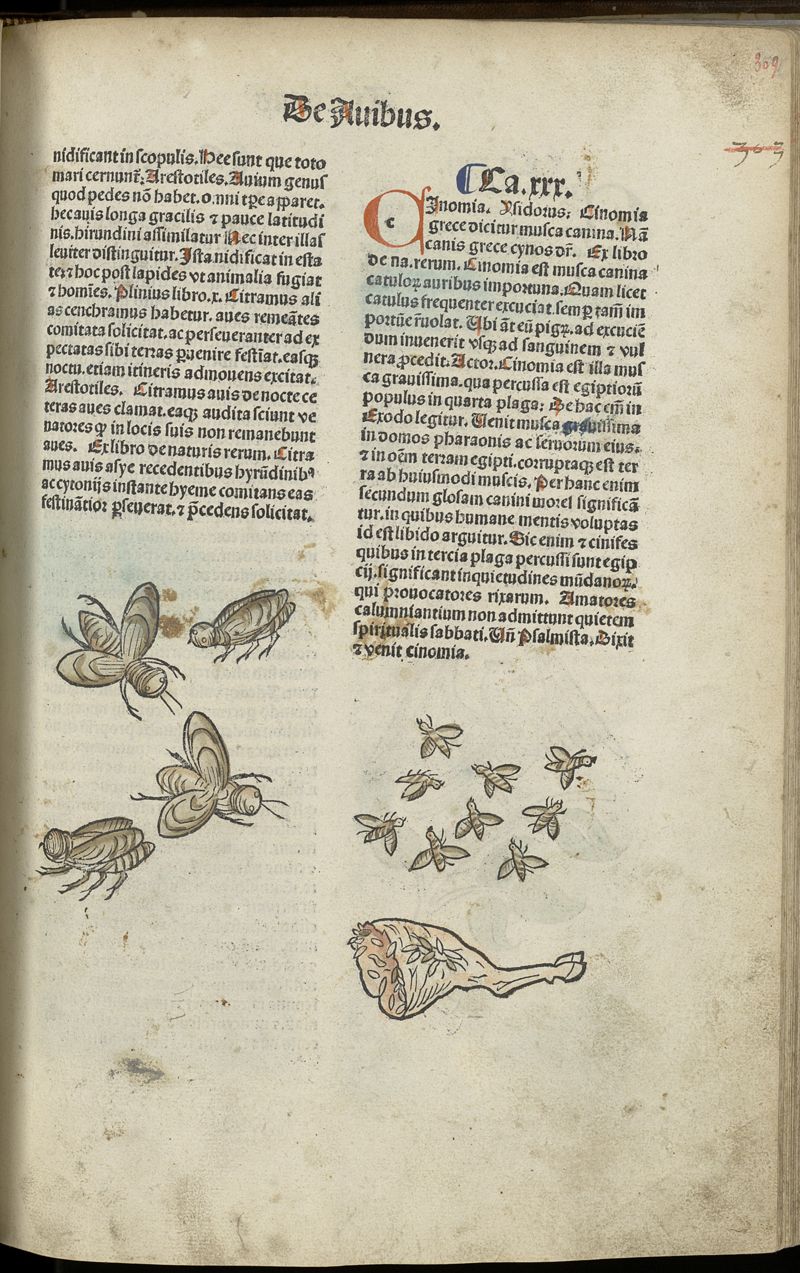 309
De Auibus.
nidificant in scopulis. Hee sunt que toto
mari cernunt᷑. Arestotiles. Auium genus
quod pedes nō habet. omni tꝑe apparet.
hec auis longa gracilis ⁊ pauce latitudi
nis. hirundini assimilatur Nec inter illas
leuiter distinguitur. Ista nidificat in esta
te. ⁊ hoc post lapides vt animalia fugiat
⁊ homīes. Plinius libro. x. Citramus ali
as cenchramus habetur. aues remeātes
comitata solicitat. ac perseueranter ad ex
pectatas sibi terras ꝑuenire festīat. easqꝫ
noctu. etiam itineris admonens excitat.
Arestotiles. Citramus auis de nocte ce
teras aues clamat. eaqꝫ audita sciunt ve
natores ꝙ in locis suis non remanebunt
aues. Ex libro de naturis rerum. Citra
mus auis asye recedentibus hyrūdinibꝰ
ac cytonijs instante hyeme comitans eas
festinātior ꝑseuerat. ⁊ p̄cedens solicitat.
Ca. xxx.
CInomia. Ysidorus. Cinomia
grece dicitur musca canina. Nā
canis grece cynos dr̄. Ex libro
de na. rerum. Cinomia est musca canina
catuloꝝ auribus importuna. Quam licet
catulus frequenter excuciat. semꝑ tam̄ im
portūe r̄uolat. Ubi āt eū pigꝝ. ad excuciē
dum inuenerit vsqꝫ ad sanguinem ⁊ vul
nera ꝓcedit. Actor. Cinomia est illa mus
ca grauissima. qua percussa est egiptiorū
populus in quarta plaga: De hac em̄ in
Exodo legitur. Uenit musca grauissima
in domos pharaonis ac seruorum eius.
⁊ in oēm terram egipti. corruptaqꝫ est ter
ra ab huiusmodi muscis. Per hanc enim
secundum glosam canini morel significā
tur. in quibus humane mentis voluptas
id est libido arguitur. Sic enim ⁊ cinifes
quibus in tercia plaga percussi sunt egip
cij. significant inquietudines mūdanoꝝ.
qui prouocatores rixarum. Amatores
calumniantium non admittunt quietem
spiritualis sabbati. Uñ Psalmista. Dixit
⁊ venit cinomia.